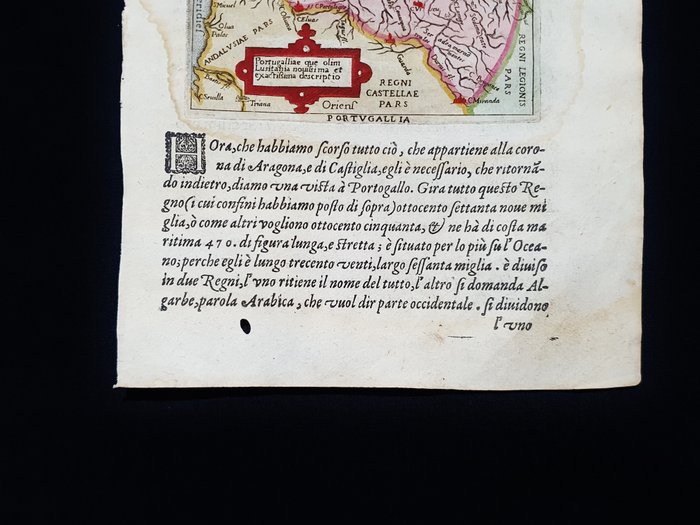 Meridies
S. Micuel
Olua
Palos
ANDALVSIAE PARS
C. Eluas
C. Seuilla
Triana
Portugalliae que olim
Lusitania nouissima et
exactissima descriptio
Oriens
REGNI
CASTELLAE
PARS
C. Miranda
REGNI LEGIONIS
PARS
PORTVGALLIA
HOra, che habbiamo ſcorſo tutto ciò, che appartiene alla coro-
na di Aragona, e di Caſtiglia, egli è neceſſario, che ritornã-
do indietro, diamo vna viſta à Portogallo. Gira tutto queſto Re-
gno (i cui confini habbiamo poſto di ſopra) ottocento ſettanta noue mi
glia, ò come altri vogliono ottocento cinquanta, & ne hà di coſta ma
ritima 470. di figura lunga, e ſtretta; è ſituato per lo più ſu l'Ocea-
no; perche egli è lungo trecento venti, largo ſeſſanta miglia. è diuiſo
in due Regni, l'vno ritiene il nome del tutto, l'altro ſi domanda Al-
garbe, parola Arabica, che vuol dir parte occidentale. ſi diuidono
l'vno